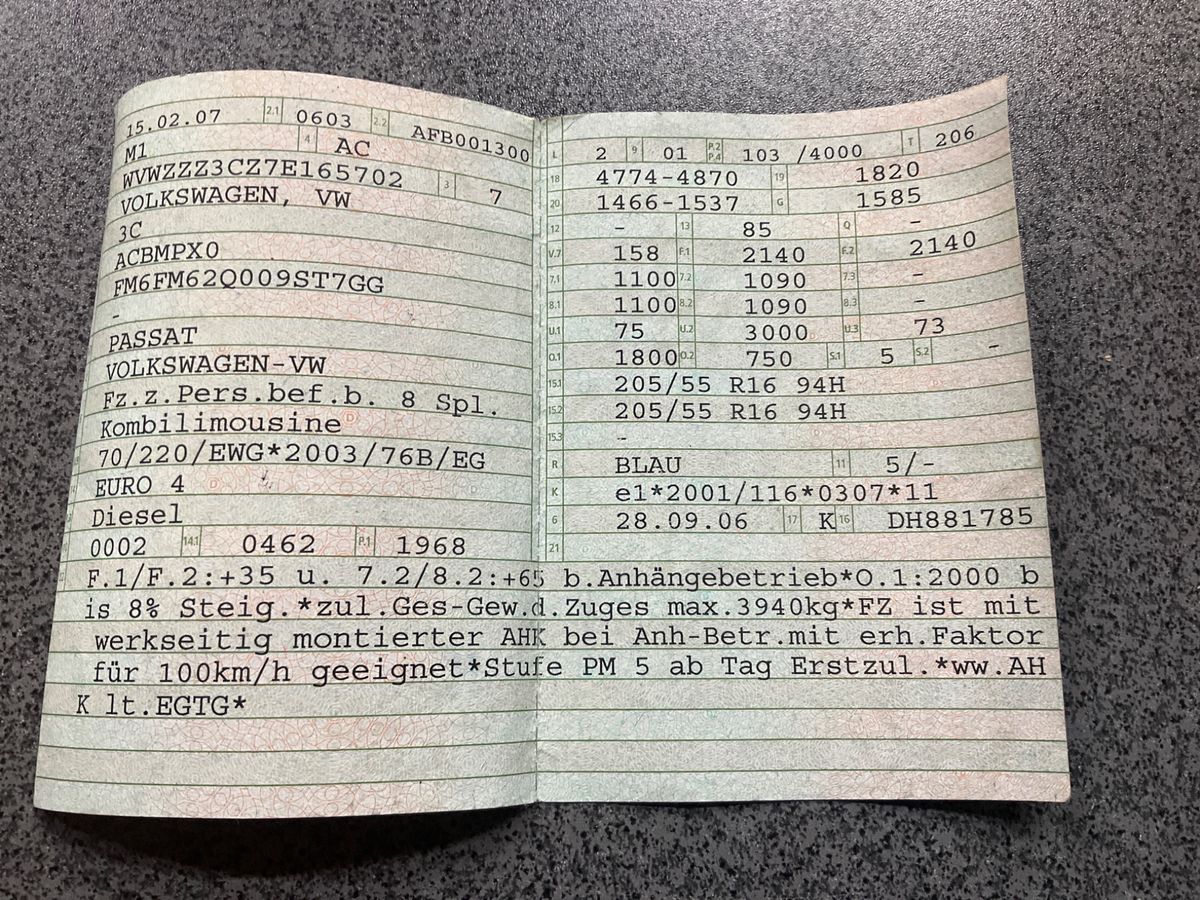 15.02.07 2.1 0603 2.2 AFB001300
M1 4 AC
WVWZZZ3CZ7E165702 3 7
VOLKSWAGEN, VW
3C
ACBMPX0
FM6FM62Q009ST7GG
-
PASSAT
VOLKSWAGEN-VW
Fz.z.Pers.bef.b. 8 Spl.
Kombilimousine
70/220/EWG*2003/76B/EG
EURO 4
Diesel
0002 14.1 0462 P.1 1968
L 2 9 01 P.2 P.4 103 /4000 T 206
18 4774-4870 19 1820
20 1466-1537 G 1585
12 - 13 85 Q -
V.7 158 F.1 2140 F.2 2140
7.1 1100 7.2 1090 7.3 -
8.1 1100 8.2 1090 8.3 -
U.1 75 U.2 3000 U.3 73
O.1 1800 O.2 750 S.1 5 S.2 -
15.1 205/55 R16 94H
15.2 205/55 R16 94H
15.3 -
R BLAU 11 5/-
K e1*2001/116*0307*11
6 28.09.06 17 K 16 DH881785
21
F.1/F.2:+35 u. 7.2/8.2:+65 b.Anhängebetrieb*O.1:2000 b
is 8% Steig.*zul.Ges-Gew.d.Zuges max.3940kg*FZ ist mit
werkseitig montierter AHK bei Anh-Betr.mit erh.Faktor
für 100km/h geeignet*Stufe PM 5 ab Tag Erstzul.*ww.AH
K lt.EGTG*